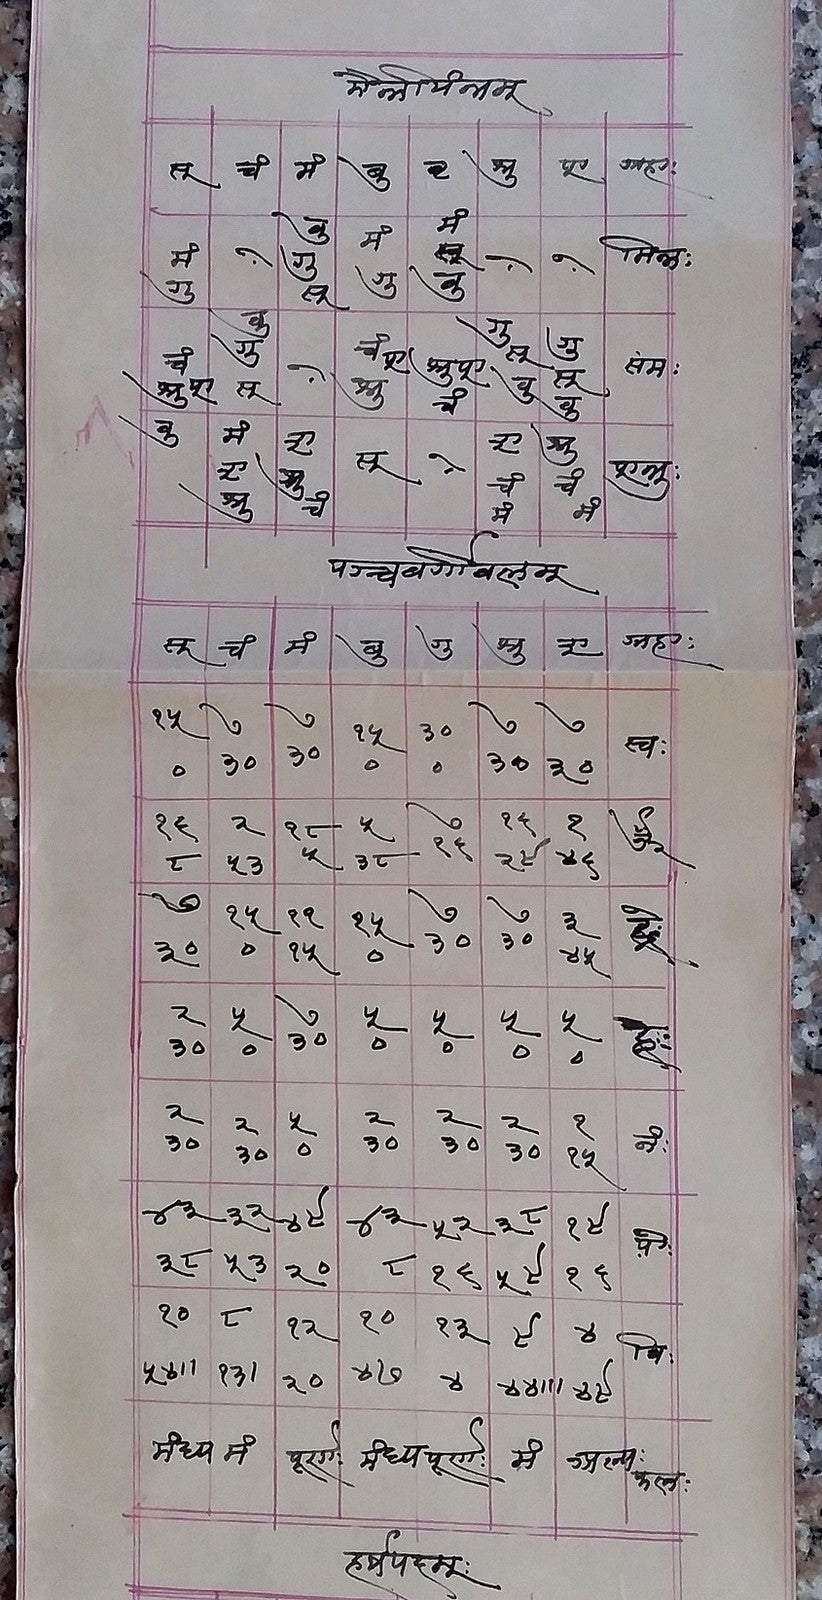 मैत्रीचक्रम्
सू चं मं बु बृ शु श ग्रहाः
मं गु बु गु सू मं गु मं सू बु मित्रः
चं शु श बु गु सू चं श शु शु श चं गु सू बु गु सू बु समः
बु मं श शु श शु चं सू श चं मं शु चं मं शत्रुः
पञ्चवर्गीबलम्
सू चं मं बु गु शु श ग्रहाः
१५ ७ ७ १५ ३० ७ ७ स्वः
० ३० ३० ० ० ३० ३०
१६ २ १८ ५ ७ १६ १
८ ५३ ५ ३८ १६ २९ ४६
७ १५ ११ १५ ७ ७ ३
३० ० १५ ० ३० ३० ४५
२ ५ ७ ५ ५ ५ ५
३० ० ३० ० ० ० ०
२ २ ५ २ २ २ १ नं:
३० ३० ० ३० ३० ३० १५
४३ ३२ ४९ ४३ ५२ ३८ १९
३८ ५३ २० ८ १६ ५९ १६
१० ८ १२ १० १३ ९ ४ वि:
५४॥ १३। २० ४७ ४ ४४॥। ४९
मध्य मं पूर्ण: मध्य पूर्ण: मं अल्प: फल:
हर्षपदम्: